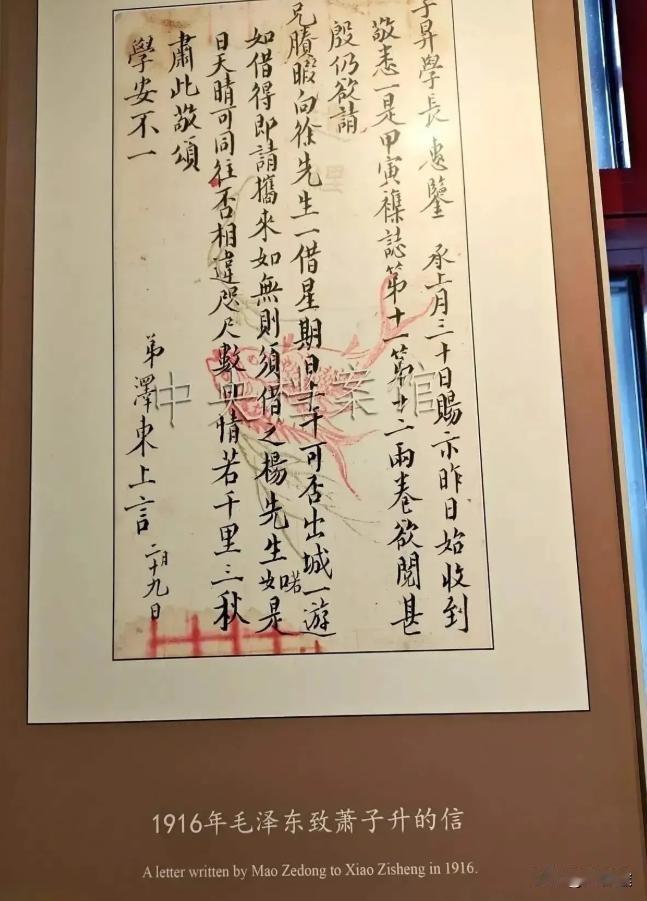 子昇學長 惠鑒 承上月三十日賜示昨日始收到
敬悉一是甲寅雜誌第十一第十二兩卷欲閱甚
殷仍欲請
兄牘暇向徐先生一借星期日上午可否出城一遊
如借得即請攜來如無則須借之楊先生處是
日天晴可同往否相違咫尺數日情若千里三秋
肅此敬頌
學安不一
弟澤東上言 二月十九日
中央档案馆
1916年毛泽东致萧子升的信
A letter written by Mao Zedong to Xiao Zisheng in 1916.